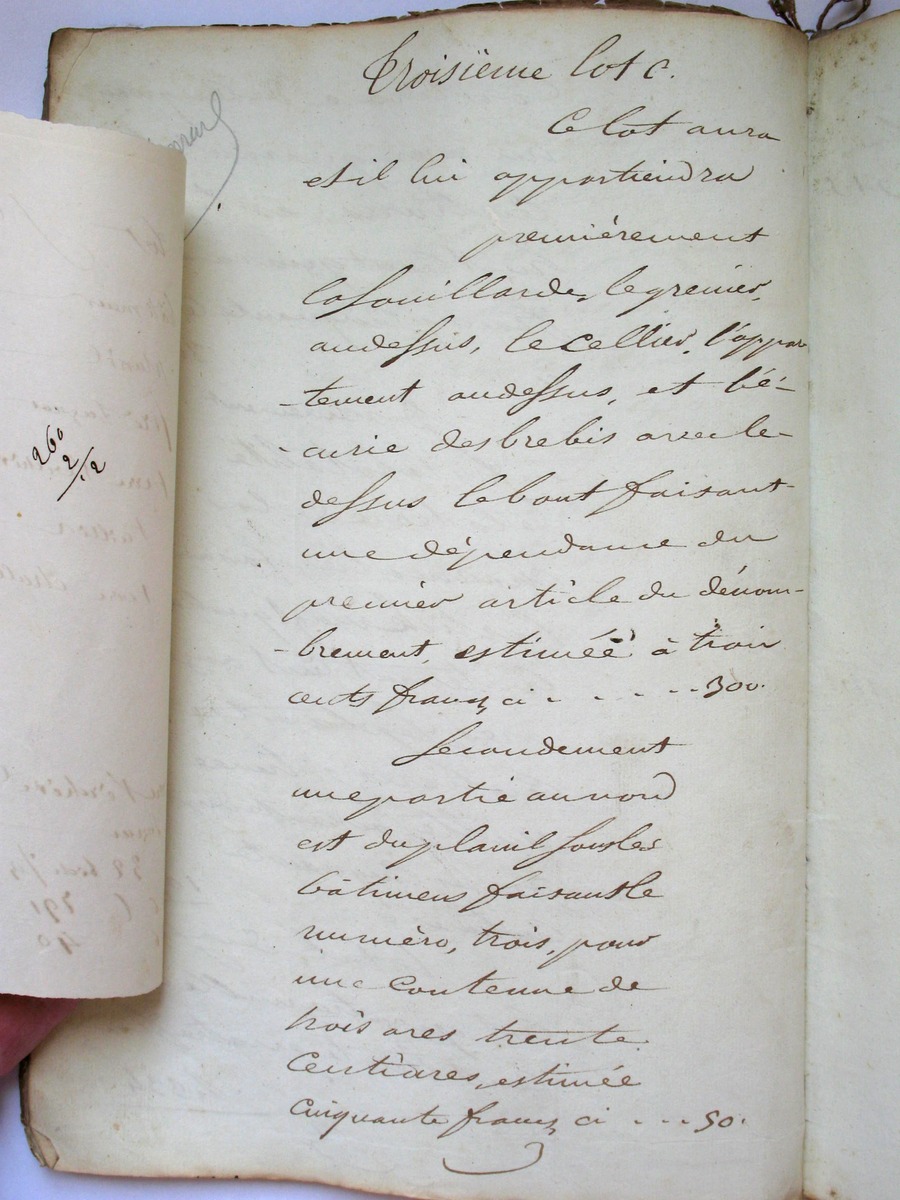 Troisième lot C.
Ce lot aura
et il lui appartiendra
premièrement
la souillarde, le grenier,
audessus, le cellier, l'appar
-tement audessus, et l'é-
-curie des brebis avec le
dessus le bout faisant
une dépendance du
premier article du dénom-
-brement, estimée à trois
cents francs ci - - - - - - 300.
Secondement
une partie au nord
est du planil sous les
bâtimens faisant le
numéro, trois, pour
une contenue de
trois ares trente
Centiares, estimée
Cinquante francs ci - - - 50.
260
2/2